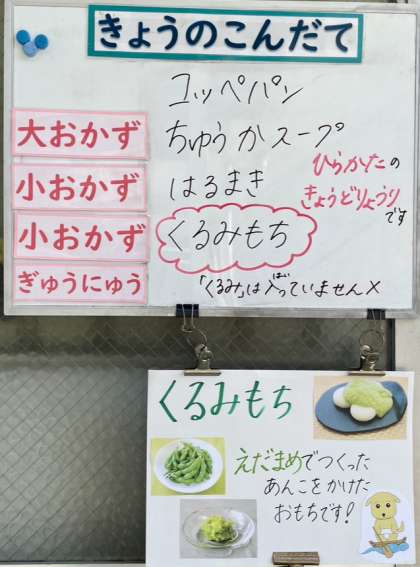 きょうのこんだて
コッペパン
大おかず ちゅうかスープ
小おかず はるまき
小おかず くるみもち
ぎゅうにゅう
ひらかたの
きょうどりょうり
です
「くるみ」は入(はい)っていません×
くるみもち
えだまめでつくった
あんこをかけた
おもちです!